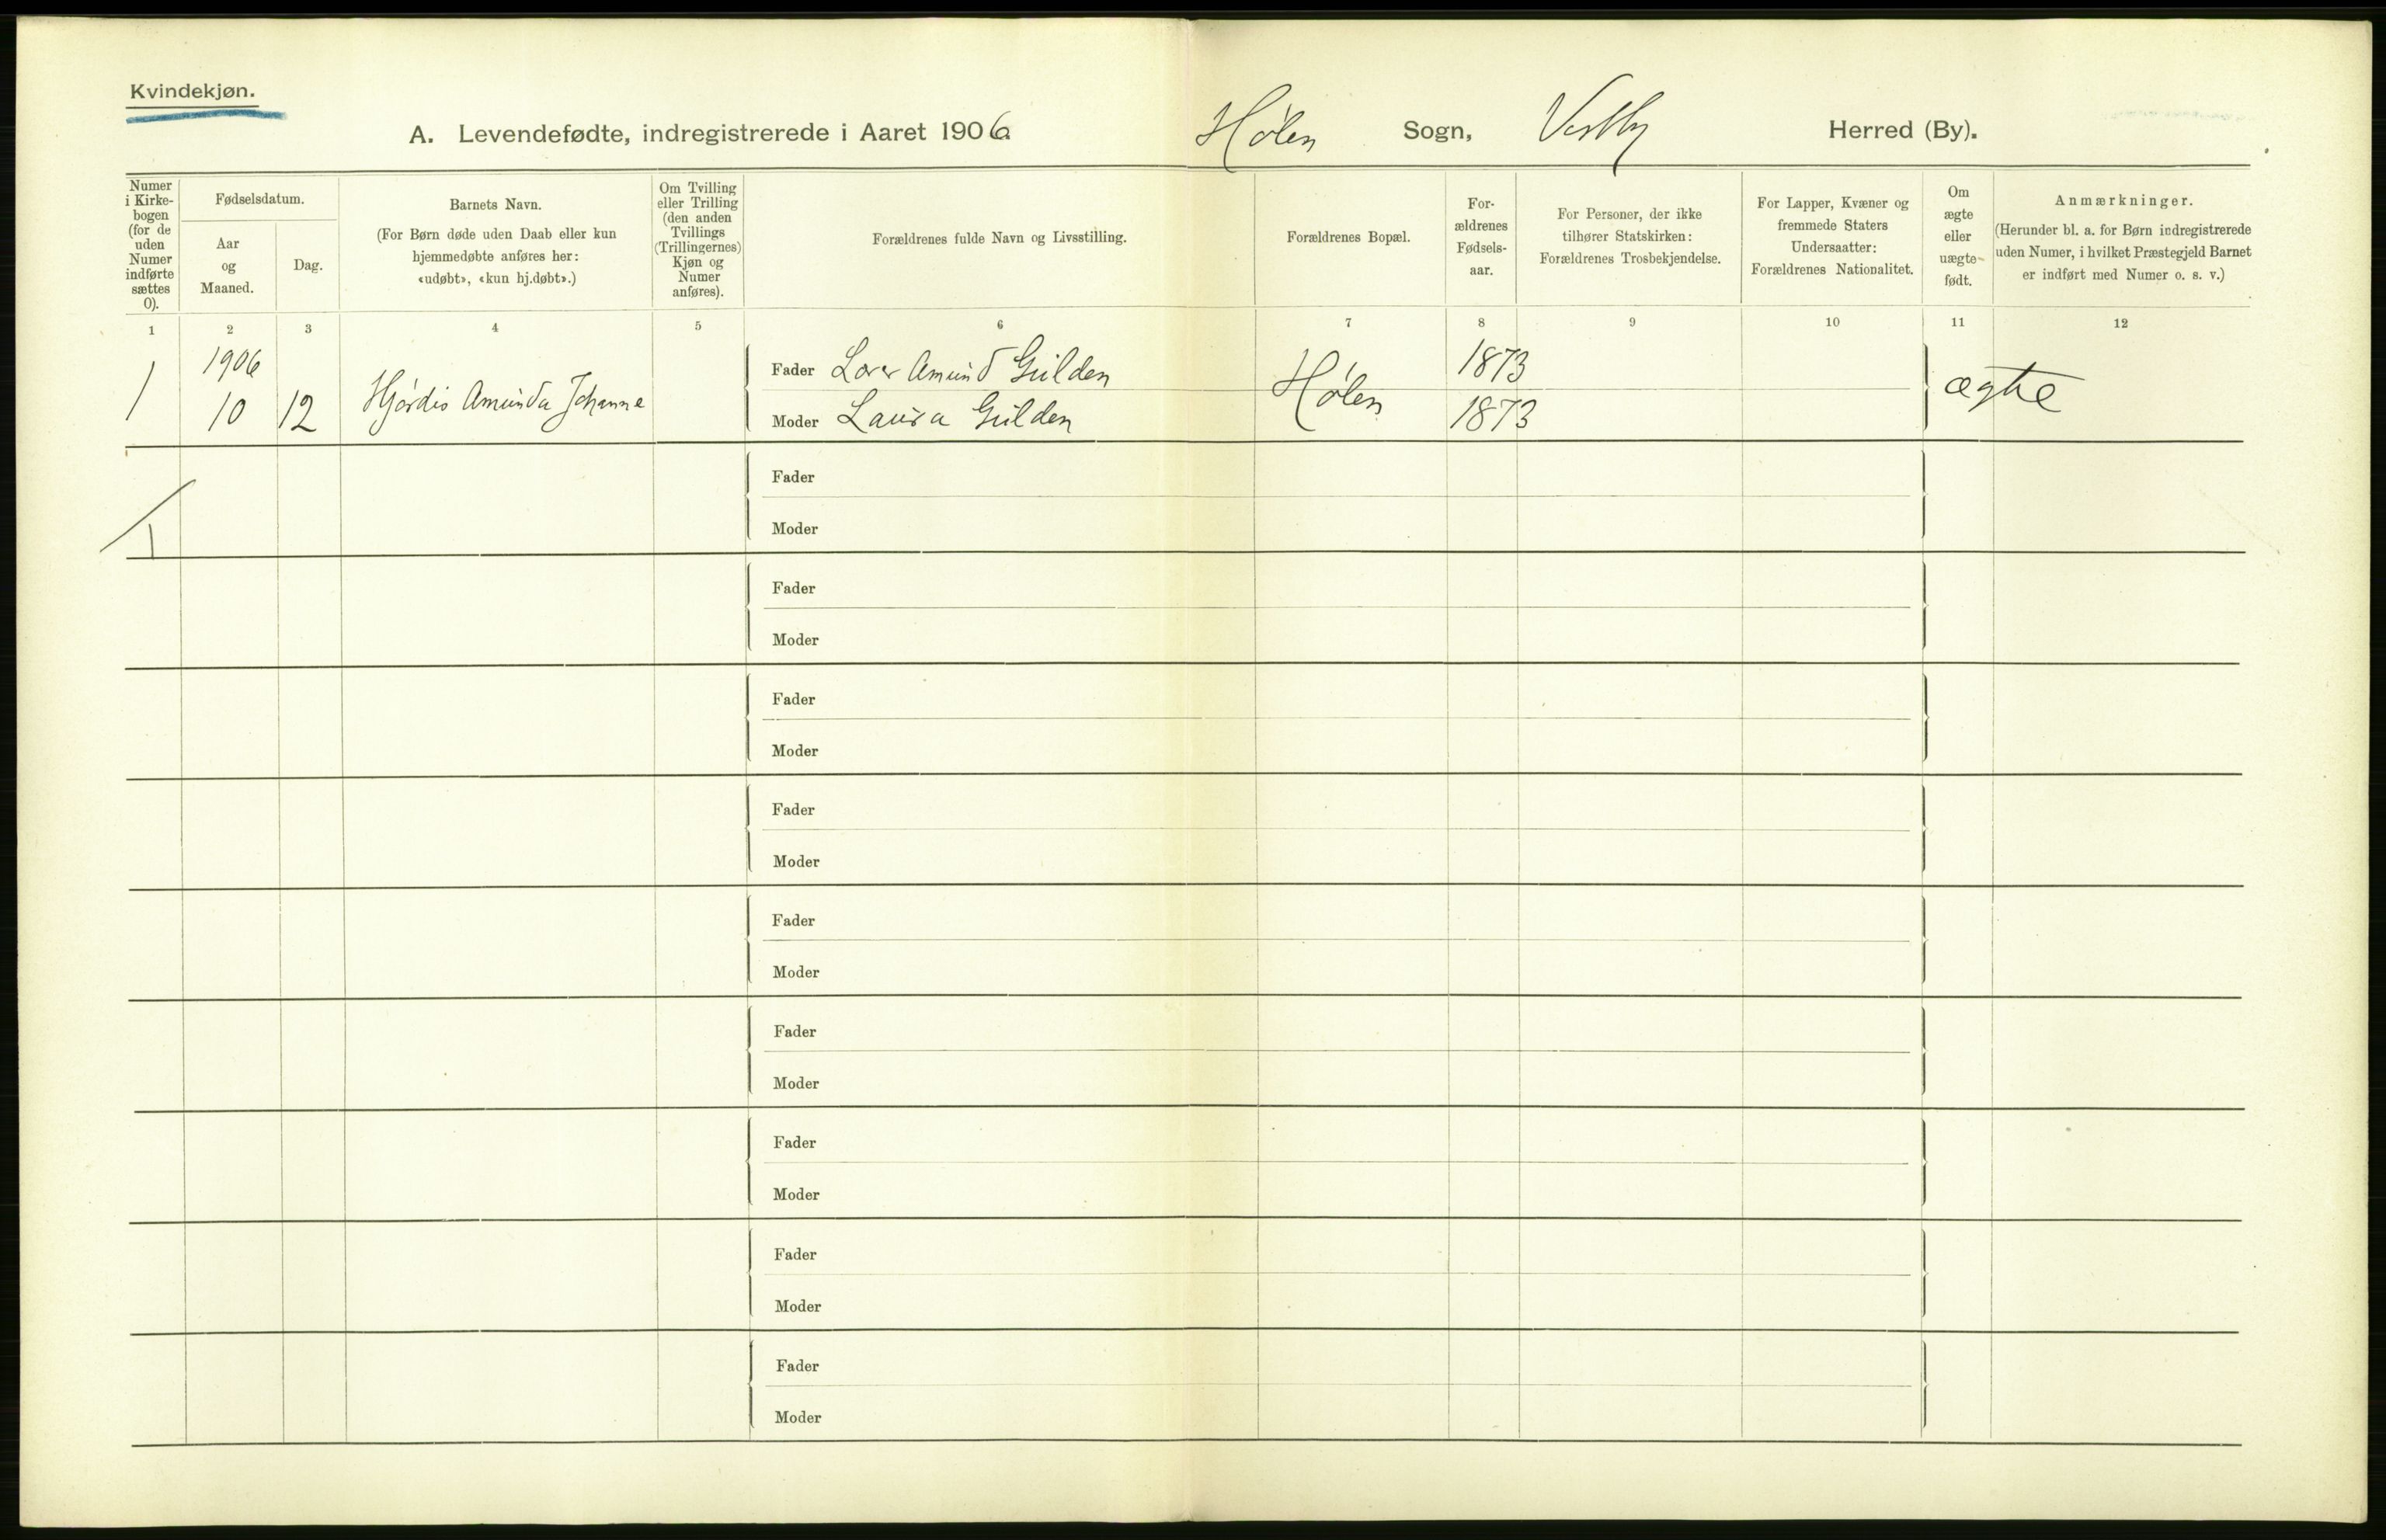 Kvindekjøn.
A. Levendefødte, indregistrerede i Aaret 1906 Hølen Sogn, Vestby Herred (By).
Numer i Kirkebogen (for de uden Numer indførte sættes 0).
Fødselsdatum.
Aar og Maaned.
Dag.
Barnets Navn.
(For Børn døde uden Daab eller kun
hjemmedøbte anføres her:
«udøbt», «kun hj.døbt».)
Om Tvilling
eller Trilling
(den anden
Tvillings
(Trillingernes)
Kjøn og
Numer
anføres).
Forældrenes fulde Navn og Livsstilling.
Forældrenes Bopæl.
For-
ældrenes
Fødsels-
aar.
For Personer, der ikke
tilhører Statskirken:
Forældrenes Trosbekjendelse.
For Lapper, Kvæner og
fremmede Staters
Undersaatter:
Forældrenes Nationalitet.
Om
ægte
eller
uægte-
født.
Anmærkninger.
(Herunder bl. a. for Børn indregistrerede
uden Numer, i hvilket Præstegjeld Barnet
er indført med Numer o. s. v.)
1 2 3 4 5 6 7 8 9 10 11 12
1 1906 10 12 Hjørdis Amunda Johanne
Fader Amund Gulden Hølen 1873 ægte
Moder Laura Gulden 1873
1
Fader
Moder
Fader
Moder
Fader
Moder
Fader
Moder
Fader
Moder
Fader
Moder
Fader
Moder
Fader
Moder
Fader
Moder